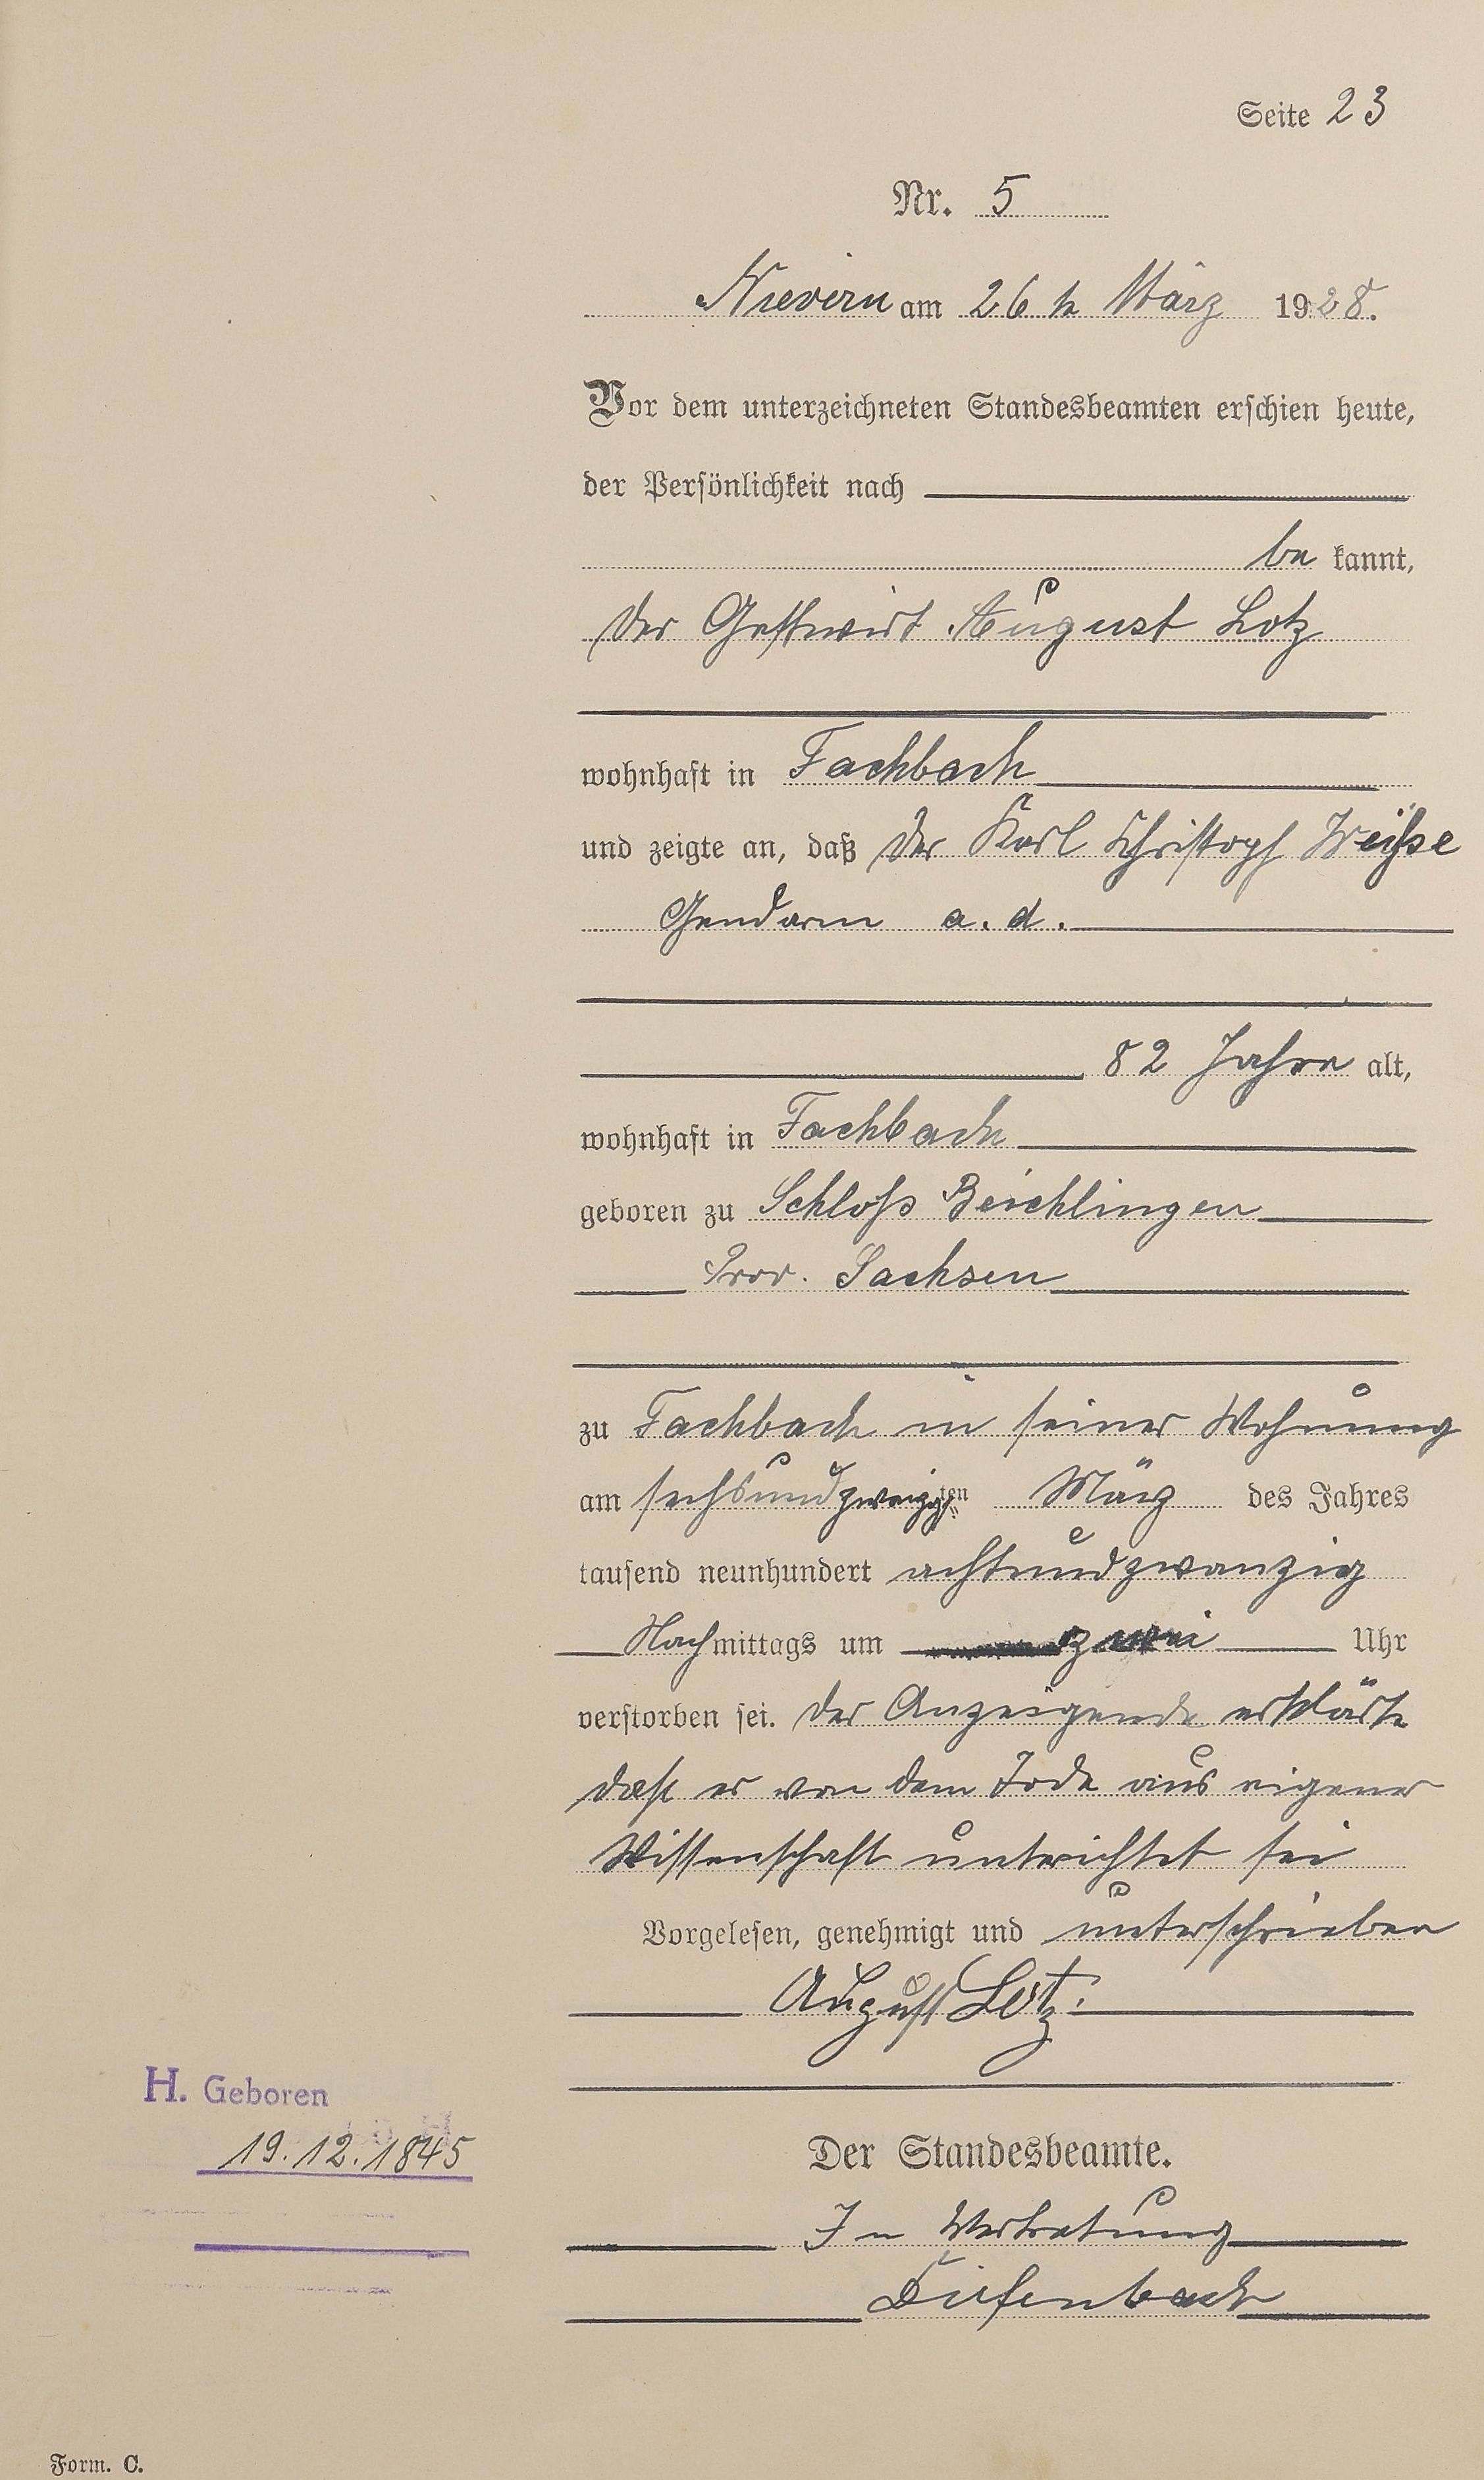 Seite 23
Nr. 5
Nievern am 26 ten März 1928.
Vor dem unterzeichneten Standesbeamten erschien heute,
der Persönlichkeit nach
be kannt,
der Gastwirt August Lotz
wohnhaft in Fachbach
und zeigte an, daß der Karl Christoph Weiße
Gendarm a. d.
82 Jahre alt,
wohnhaft in Fachbach
geboren zu Schloß Beichlingen
Prov. Sachsen
zu Fachbach in seiner Wohnung
am sechsundzwanzigsten März des Jahres
tausend neunhundert achtundzwanzig
Nachmittags um zwei Uhr
verstorben sei. Der Anzeigende erklärte
daß er von dem Tode aus eigener
Wissenschaft unterrichtet sei
Vorgelesen, genehmigt und unterschrieben
August Lotz.
H. Geboren
19.12.1845
Der Standesbeamte.
In Vertretung
Diefenbach
Form. C.